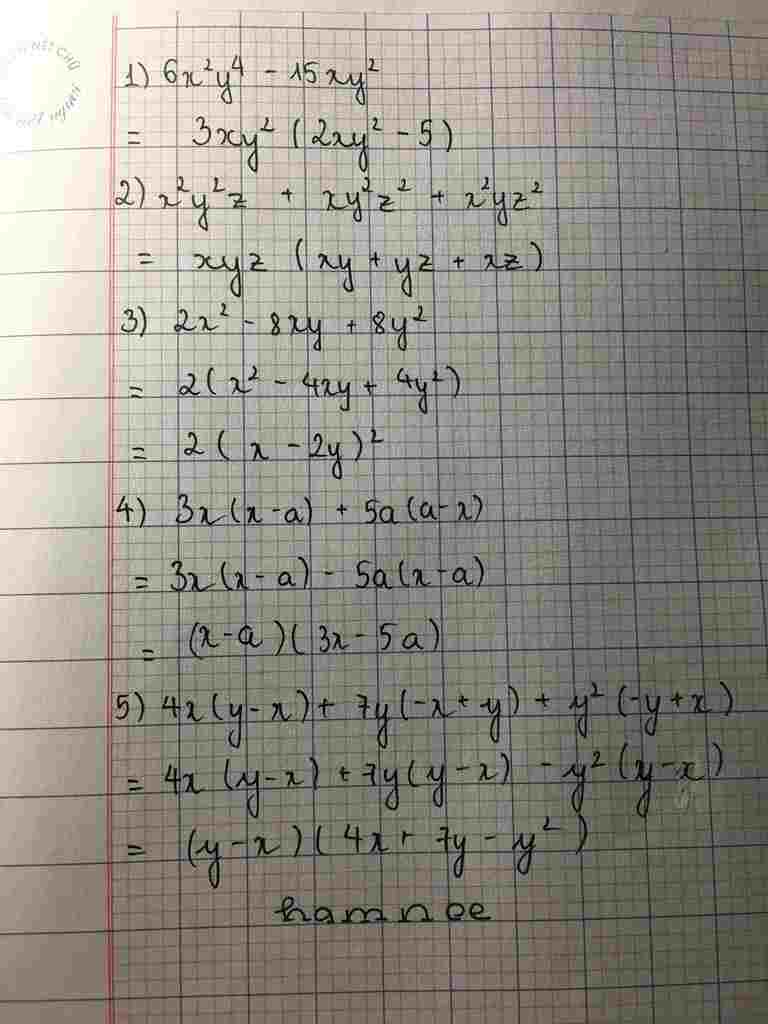 1) 6x²y⁴ - 15xy²
= 3xy² (2xy² - 5)
2) x²y²z + xy²z² + x²yz²
= xyz (xy + yz + xz)
3) 2x² - 8xy + 8y²
= 2(x² - 4xy + 4y²)
= 2(x - 2y)²
4) 3x(x-a) + 5a(a-x)
= 3x(x-a) - 5a(x-a)
= (x-a)(3x-5a)
5) 4x(y-x) + 7y(-x+y) + y²(-y+x)
= 4x(y-x) + 7y(y-x) - y²(y-x)
= (y-x)(4x+7y-y²)
hamnoe